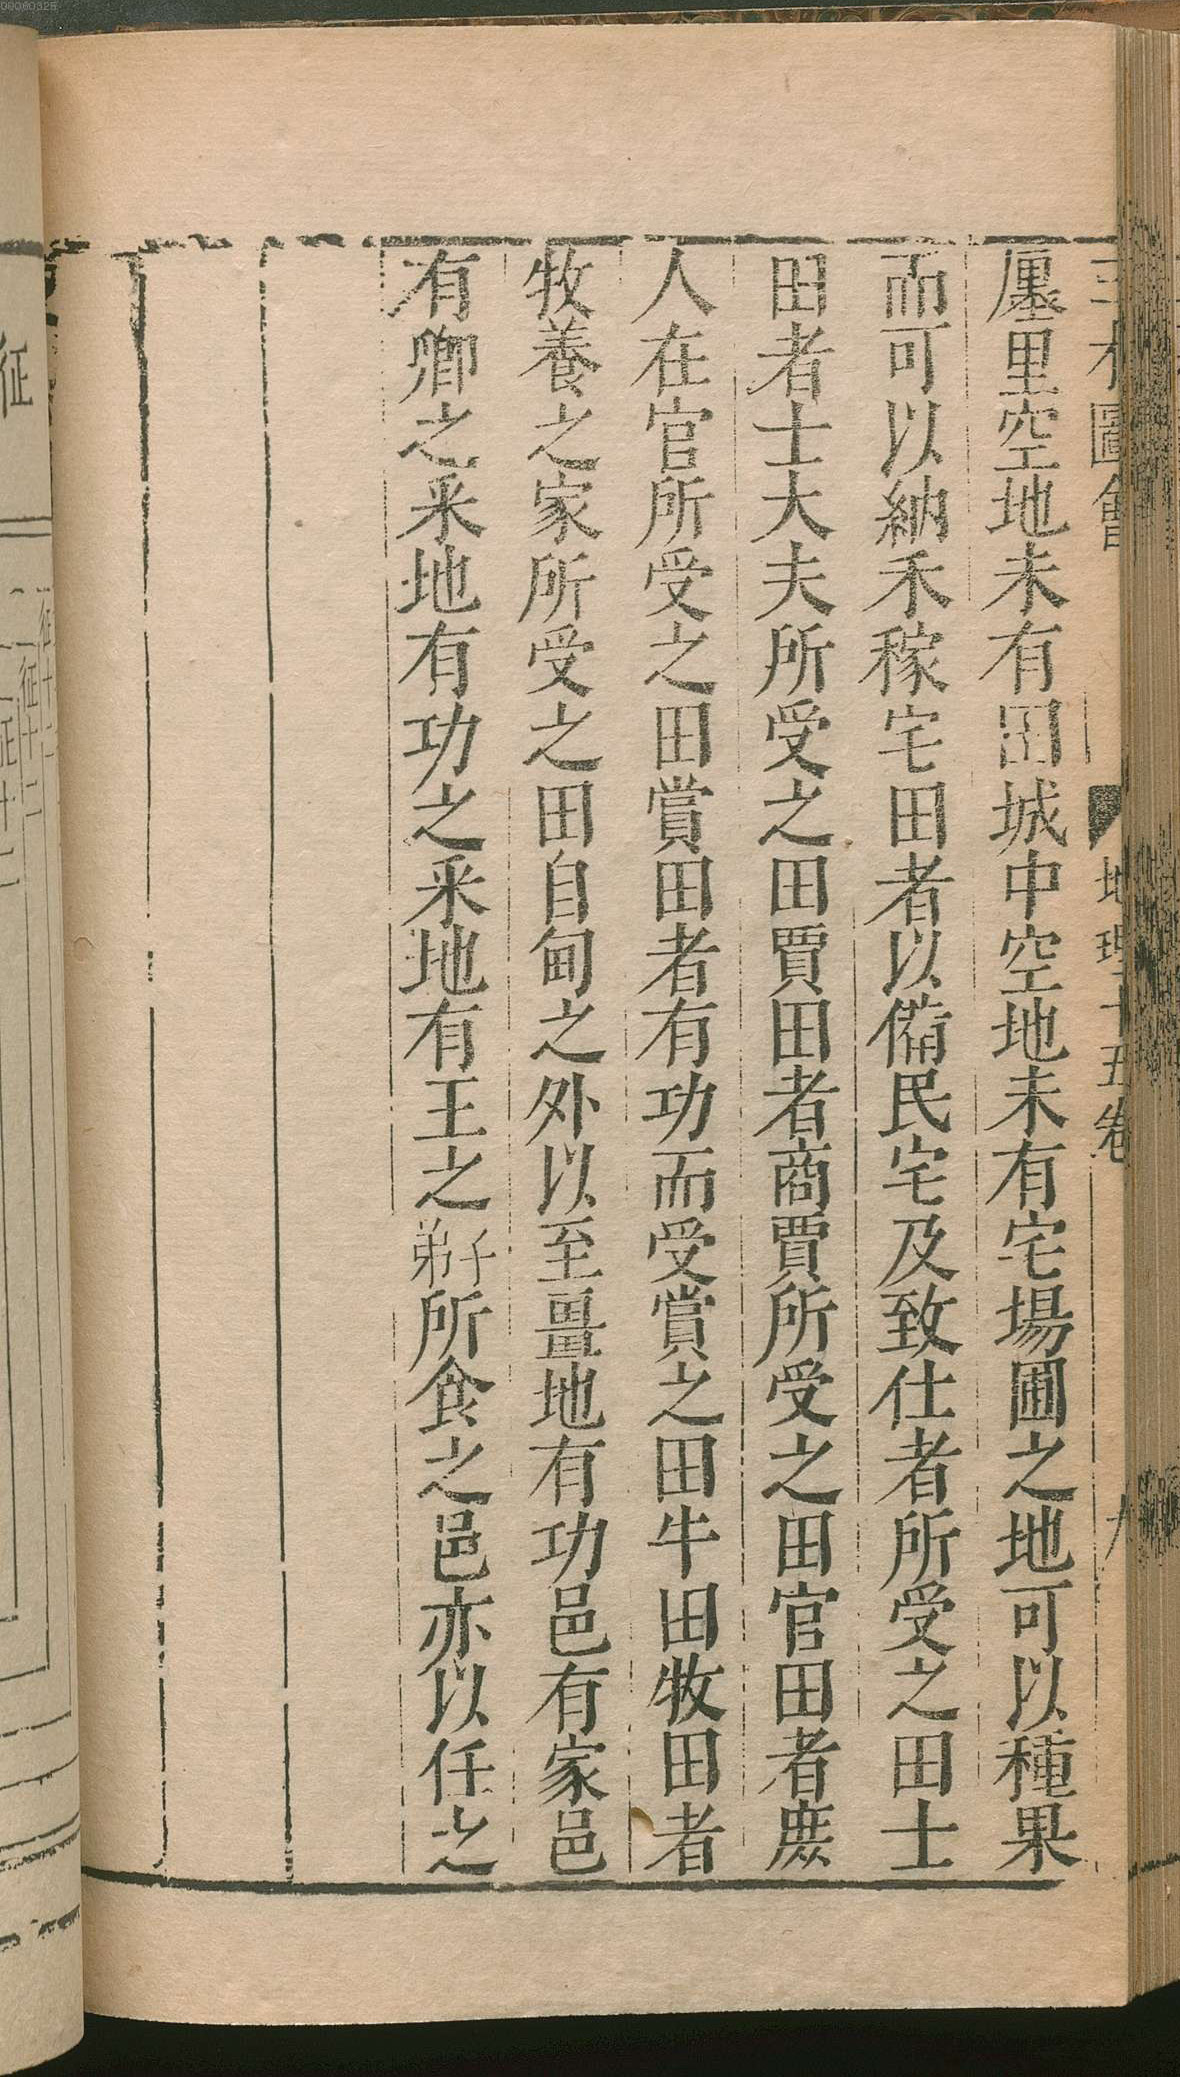 三才圖會 地理十五卷
廛里空地未有田城中空地未有宅場圃之地可以種果
而可以納禾稼宅田者以備民宅及致仕者所受之田士
田者士大夫所受之田賈田者商賈所受之田官田者庶
人在官所受之田賞田者有功而受賞之田牛田牧田者
牧養之家所受之田自甸之外以至畺地有功邑有家邑
有卿之采地有功之采地有王之子弟所食之邑亦以任之
征
征十二
征十二
征十二
00000325